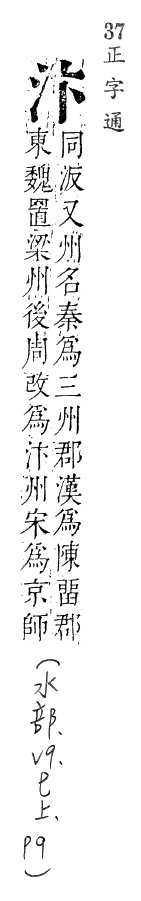 37正字通
汴
同汳又州名秦爲三州郡漢爲陳畱郡
東魏置梁州後周改爲汴州宋爲京師
(水部、v9、巳上、P9)